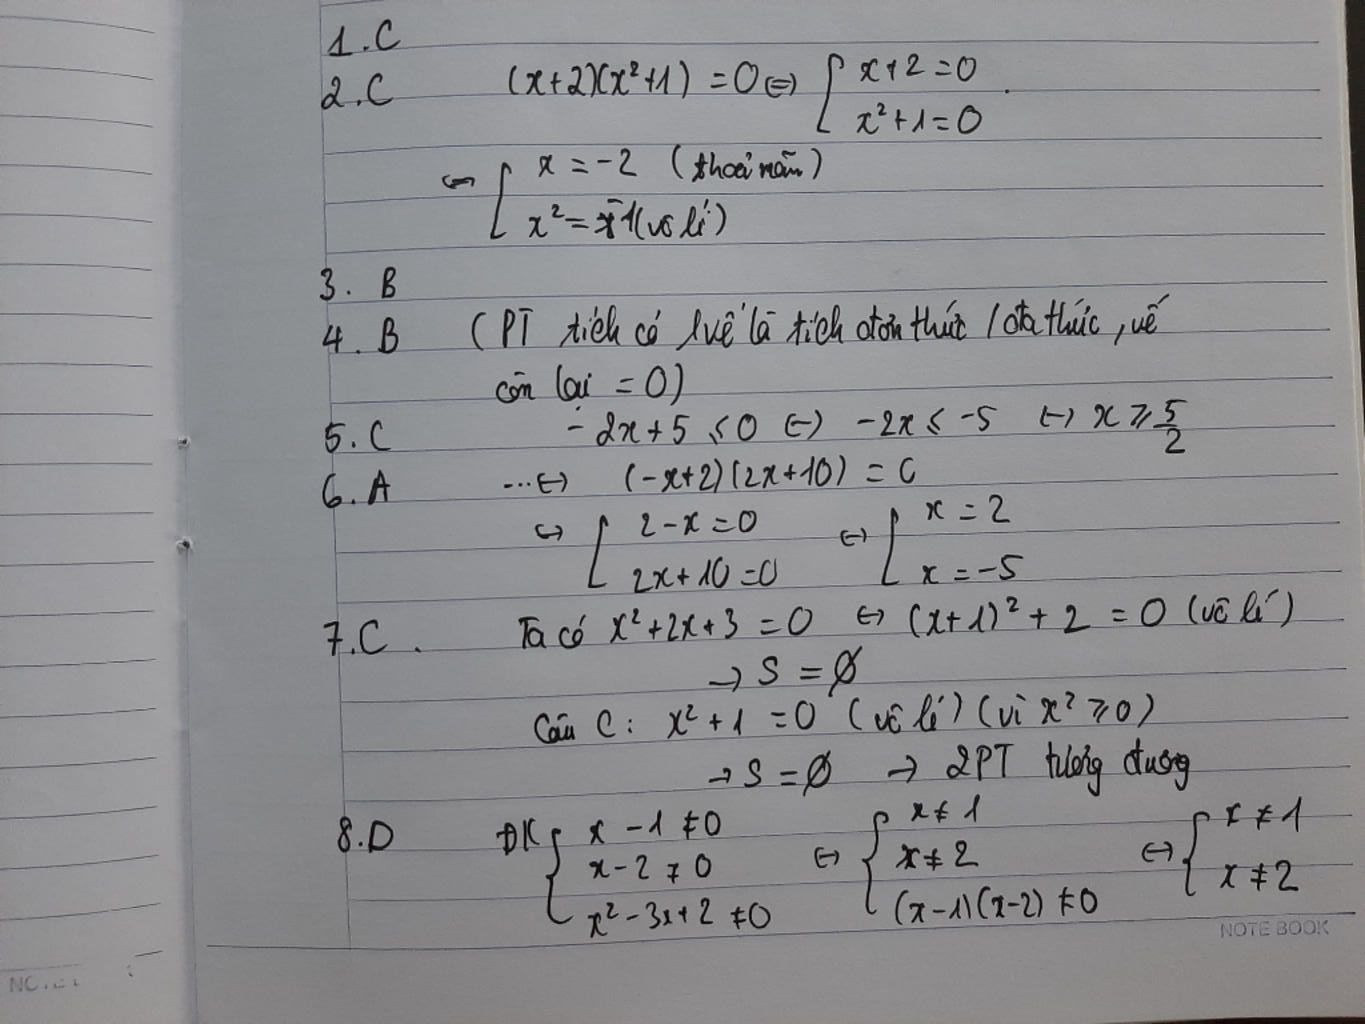 1. C
2. C (x+2)(x²+1) = 0 ⇔ [ x+2 = 0
x²+1 = 0
⇔ [ x = -2 (thoả mãn)
x² = -1 (vô lí)
3. B
4. B (PT tích có 1 vế là tích đơn thức / đa thức, vế
còn lại = 0)
5. C -2x+5 ≤ 0 ⇔ -2x ≤ -5 ⇔ x ≥ 5/2
6. A ...⇔ (-x+2)(2x+10) = 0
⇔ [ 2-x = 0 ⇔ [ x = 2
2x+10 = 0 x = -5
7. C. Ta có x²+2x+3 = 0 ⇔ (x+1)²+2 = 0 (vô lí)
→ S = Ø
Câu C: x²+1 = 0 (vô lí) (vì x² ≥ 0)
→ S = Ø → 2PT tương đương
8. D ĐK { x-1 ≠ 0 ⇔ { x ≠ 1 ⇔ { x ≠ 1
x-2 ≠ 0 x ≠ 2 x ≠ 2
x²-3x+2 ≠ 0 (x-1)(x-2) ≠ 0
NOTE BOOK